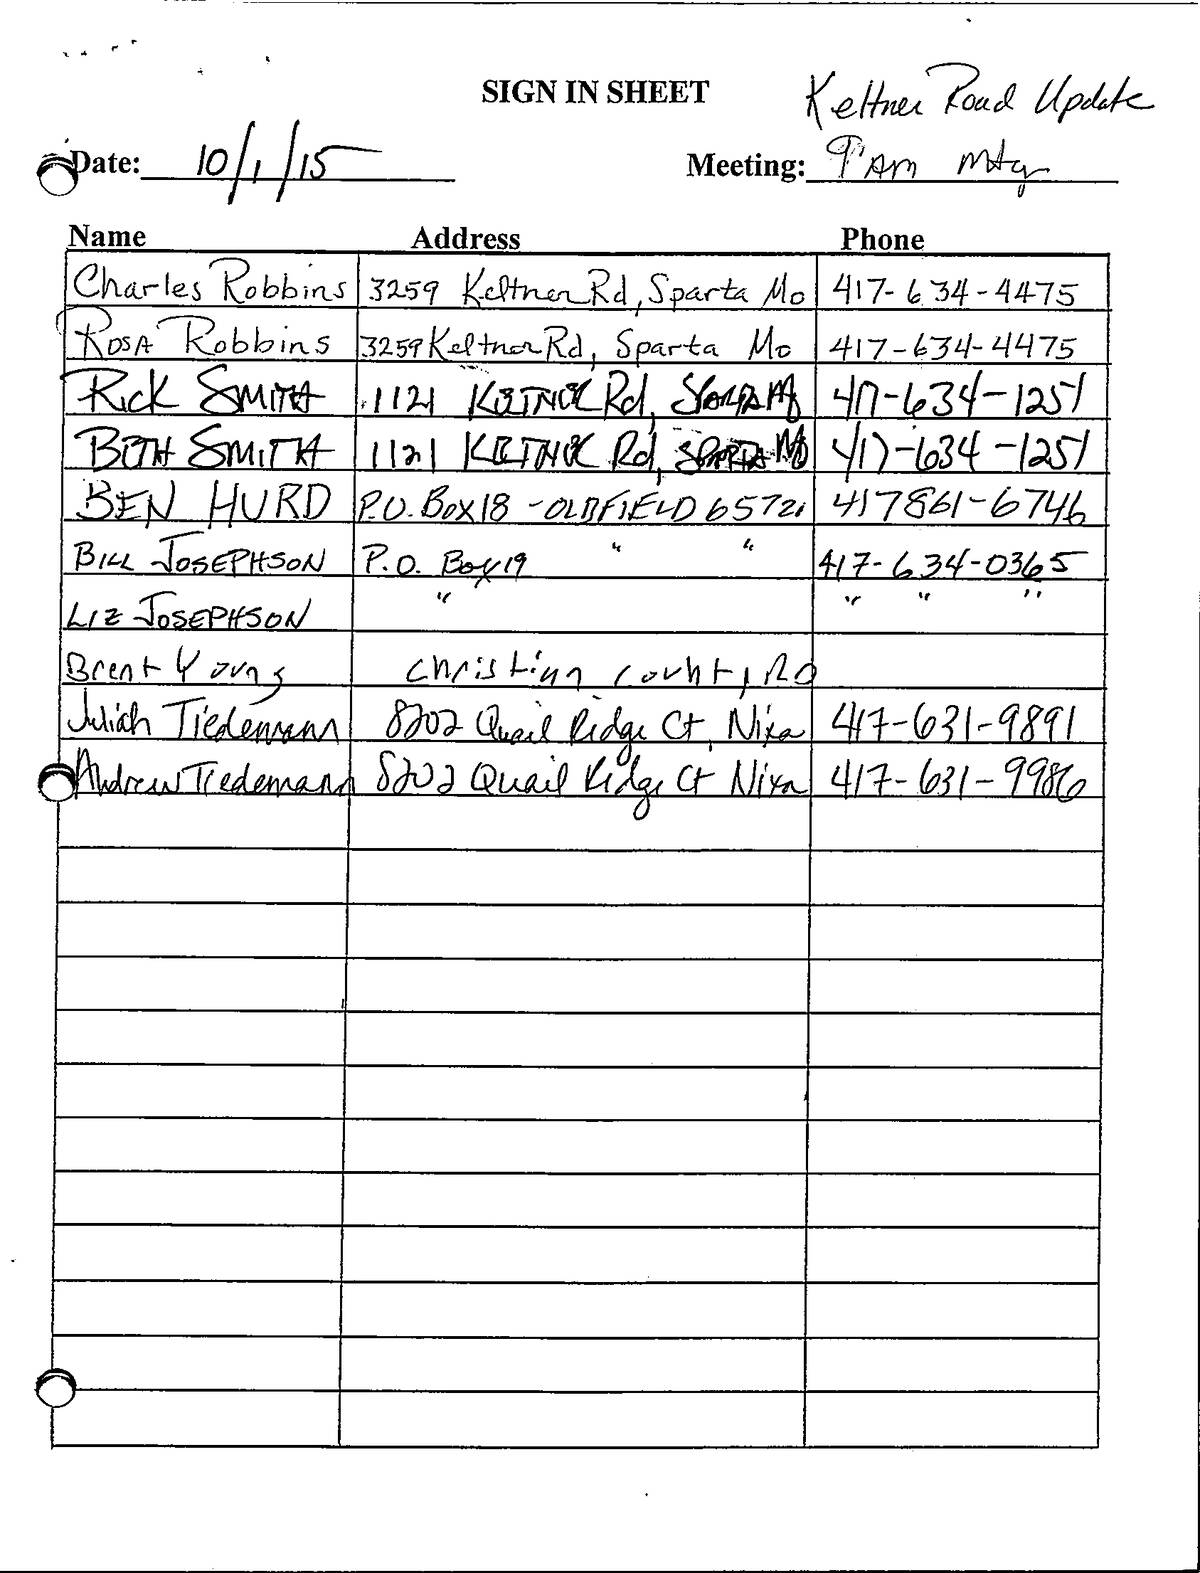 SIGN IN SHEET
Keltner Road Update
Date: 10/1/15 Meeting: 9 AM Mtg
Name Address Phone
Charles Robbins 3259 Keltner Rd, Sparta Mo 417-634-4475
Rosa Robbins 3259 Keltner Rd, Sparta Mo 417-634-4475
Rick Smith 1121 Keltner Rd, Sparta Mo 417-634-1251
Beth Smith 1121 Keltner Rd, Sparta Mo 417-634-1251
BEN HURD P.O. Box 18 - OLDFIELD 65720 417 861-6746
Bill Josephson P.O. Box 19 " " 417-634-0365
Liz Josephson " " " "
Brent Young Christian County
Juliah Tiedemann 8202 Quail Ridge Ct, Nixa 417-631-9891
Andrew Tiedemann 8202 Quail Ridge Ct Nixa 417-631-9986